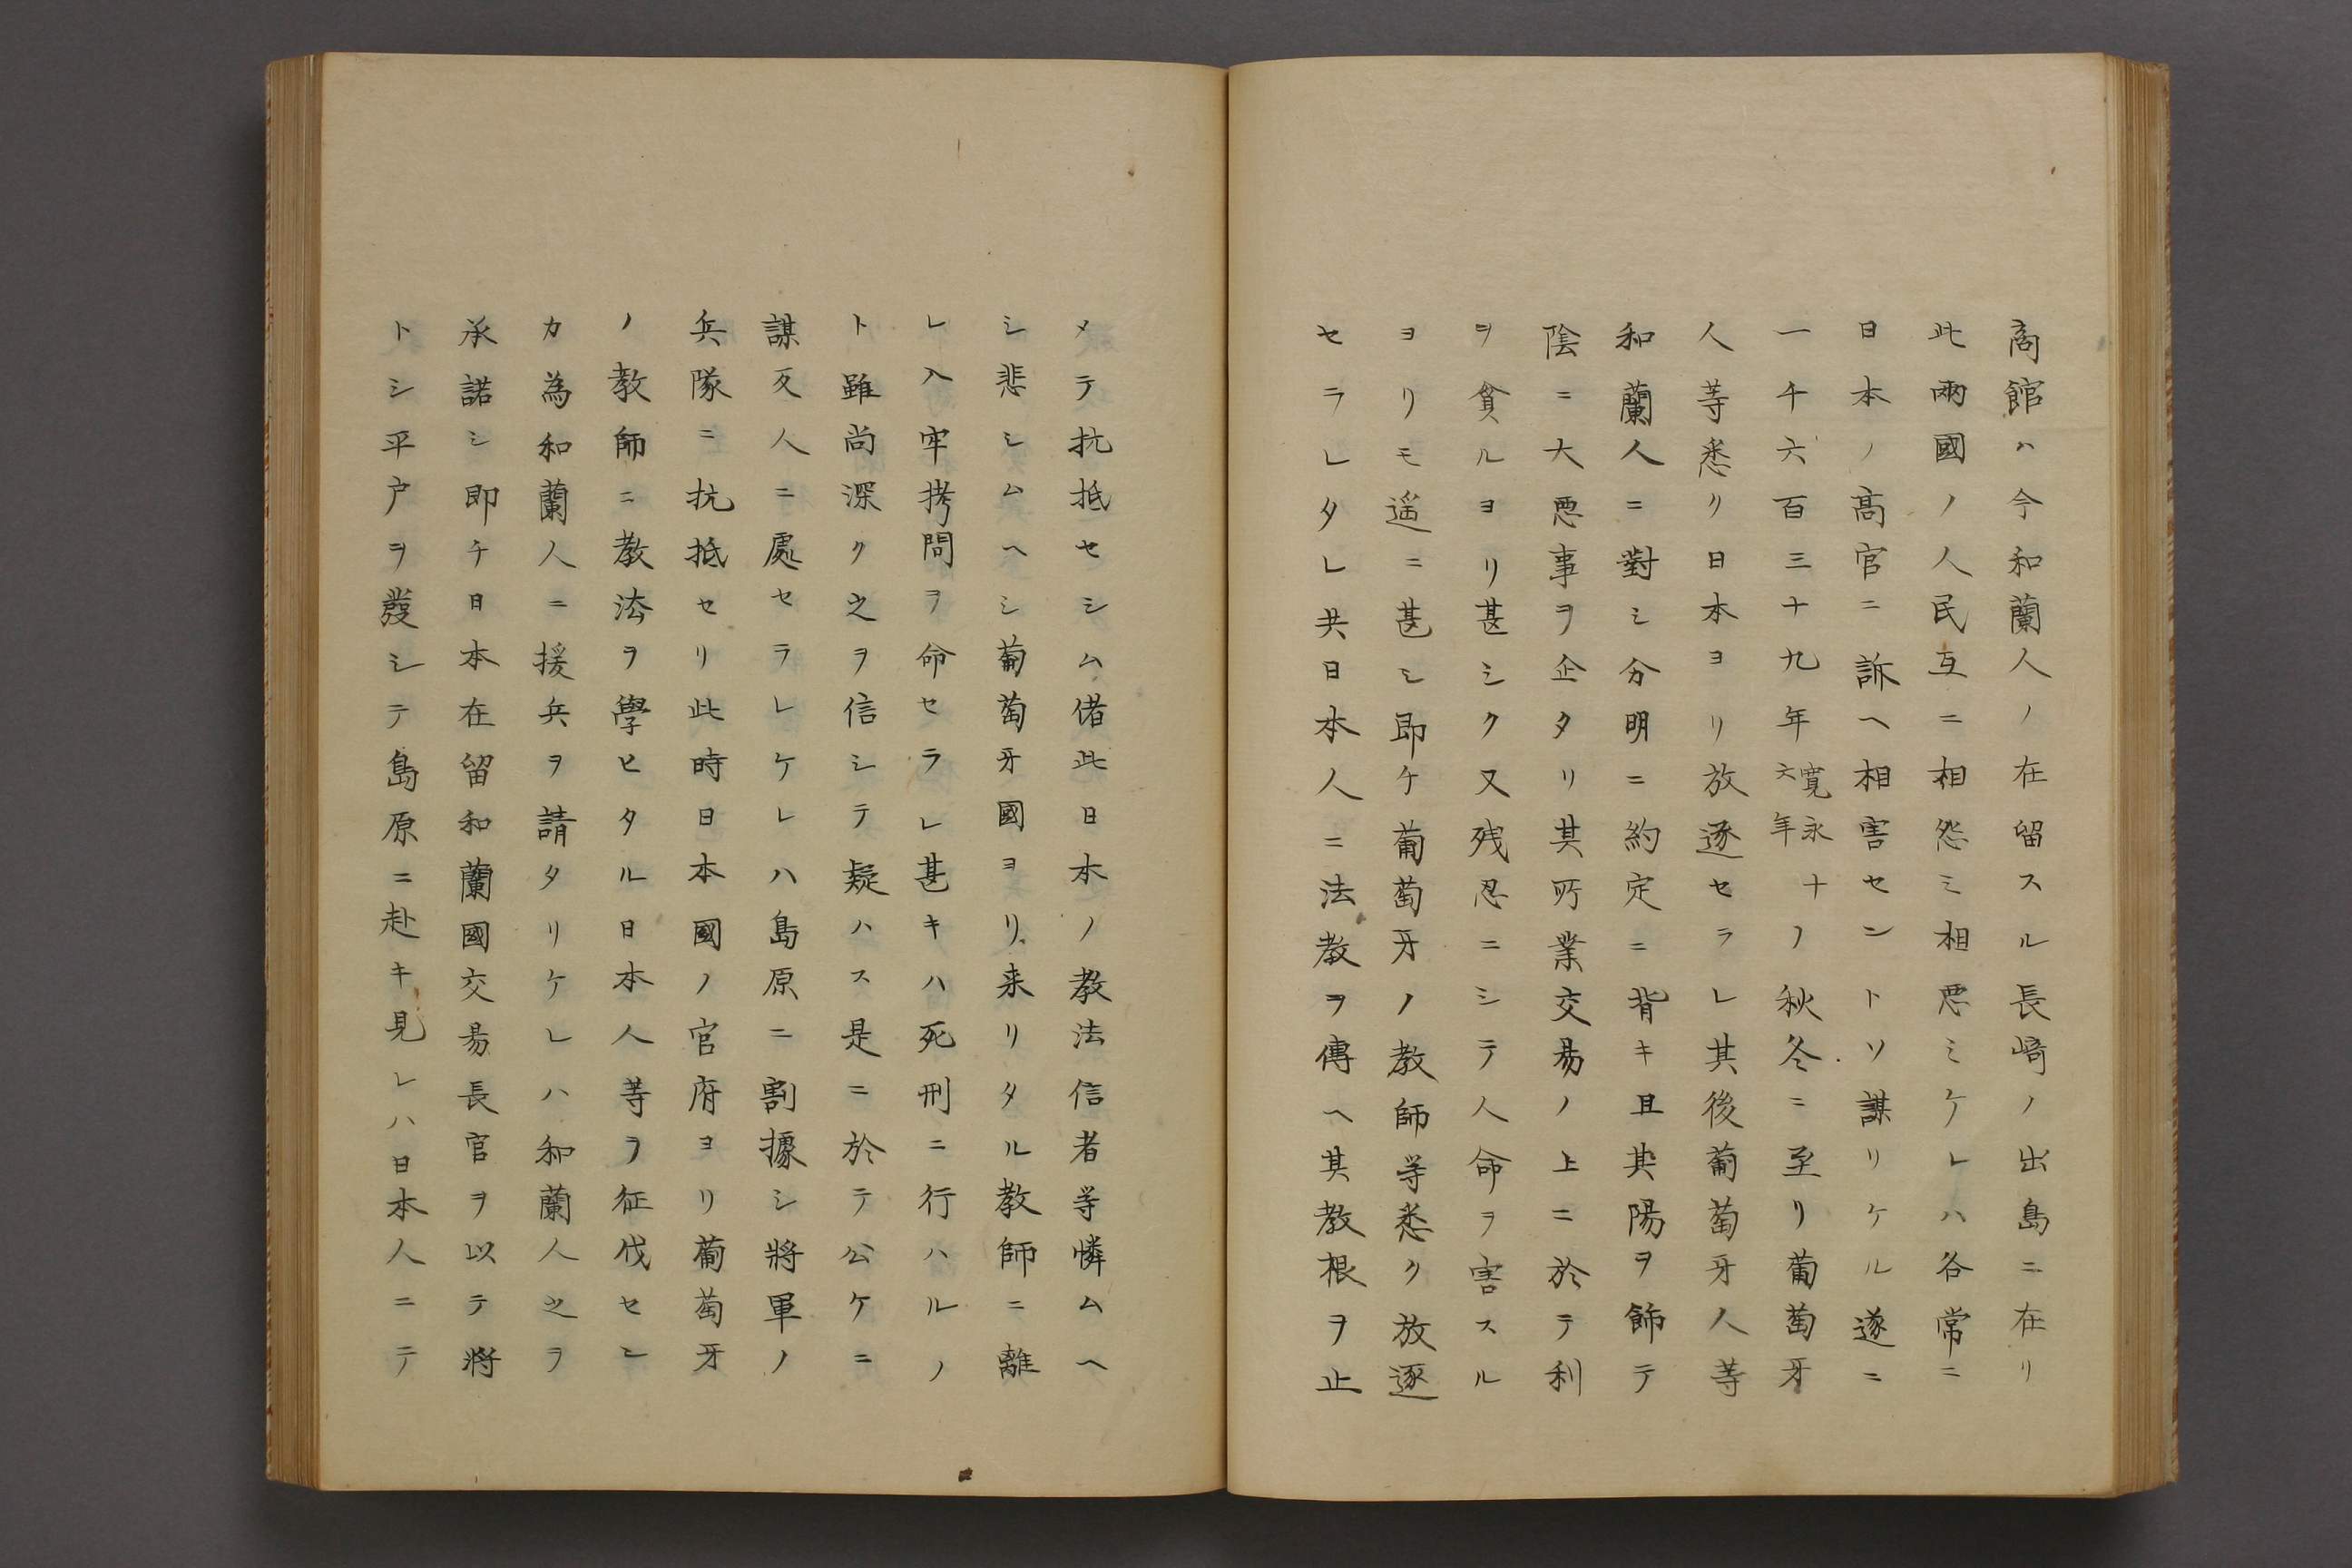 商館ハ今和蘭人ノ在留スル長﨑ノ出島ニ在リ
此兩國ノ人民互ニ相怨ミ相悪ミケレハ各常ニ
日本ノ髙官ニ訴ヘ相害セントソ謀リケル遂ニ
一千六百三十九年寛永十六年ノ秋冬ニ至リ葡萄牙
人等悉ク日本ヨリ放逐セラレ其後葡萄牙人等
和蘭人ニ對シ分明ニ約定ニ背キ且其陽ヲ飾テ
陰ニ大悪事ヲ企タリ其所業交易ノ上ニ於テ利
ヲ貧ルヨリ甚シク又残忍ニシテ人命ヲ害スル
ヨリモ遥ニ甚シ即ケ葡萄牙ノ教師等悉ク放逐
セラレタレ共日本人ニ法教ヲ傳ヘ其教根ヲ止
メテ抗抵セシム偖此日本ノ教法信者等憐ムヘ
シ悲シムヘシ葡萄牙國ヨリ来リタル教師ニ離
レ入牢拷問ヲ命セラレ甚キハ死刑ニ行ハルノ
ト雖尚深ク之ヲ信シテ疑ハス是ニ於テ公ケニ
謀反人ニ處セラレケレハ島原ニ割據シ將軍ノ
兵隊ニ抗抵セリ此時日本國ノ官府ヨリ葡萄牙
ノ教師ニ教法ヲ學ヒタル日本人等ヲ征伐セン
カ為和蘭人ニ援兵ヲ請タリケレハ和蘭人之ヲ
承諾シ即チ日本在留和蘭國交易長官ヲ以テ將
トシ平戸ヲ發シテ島原ニ赴キ見レハ日本人ニテ